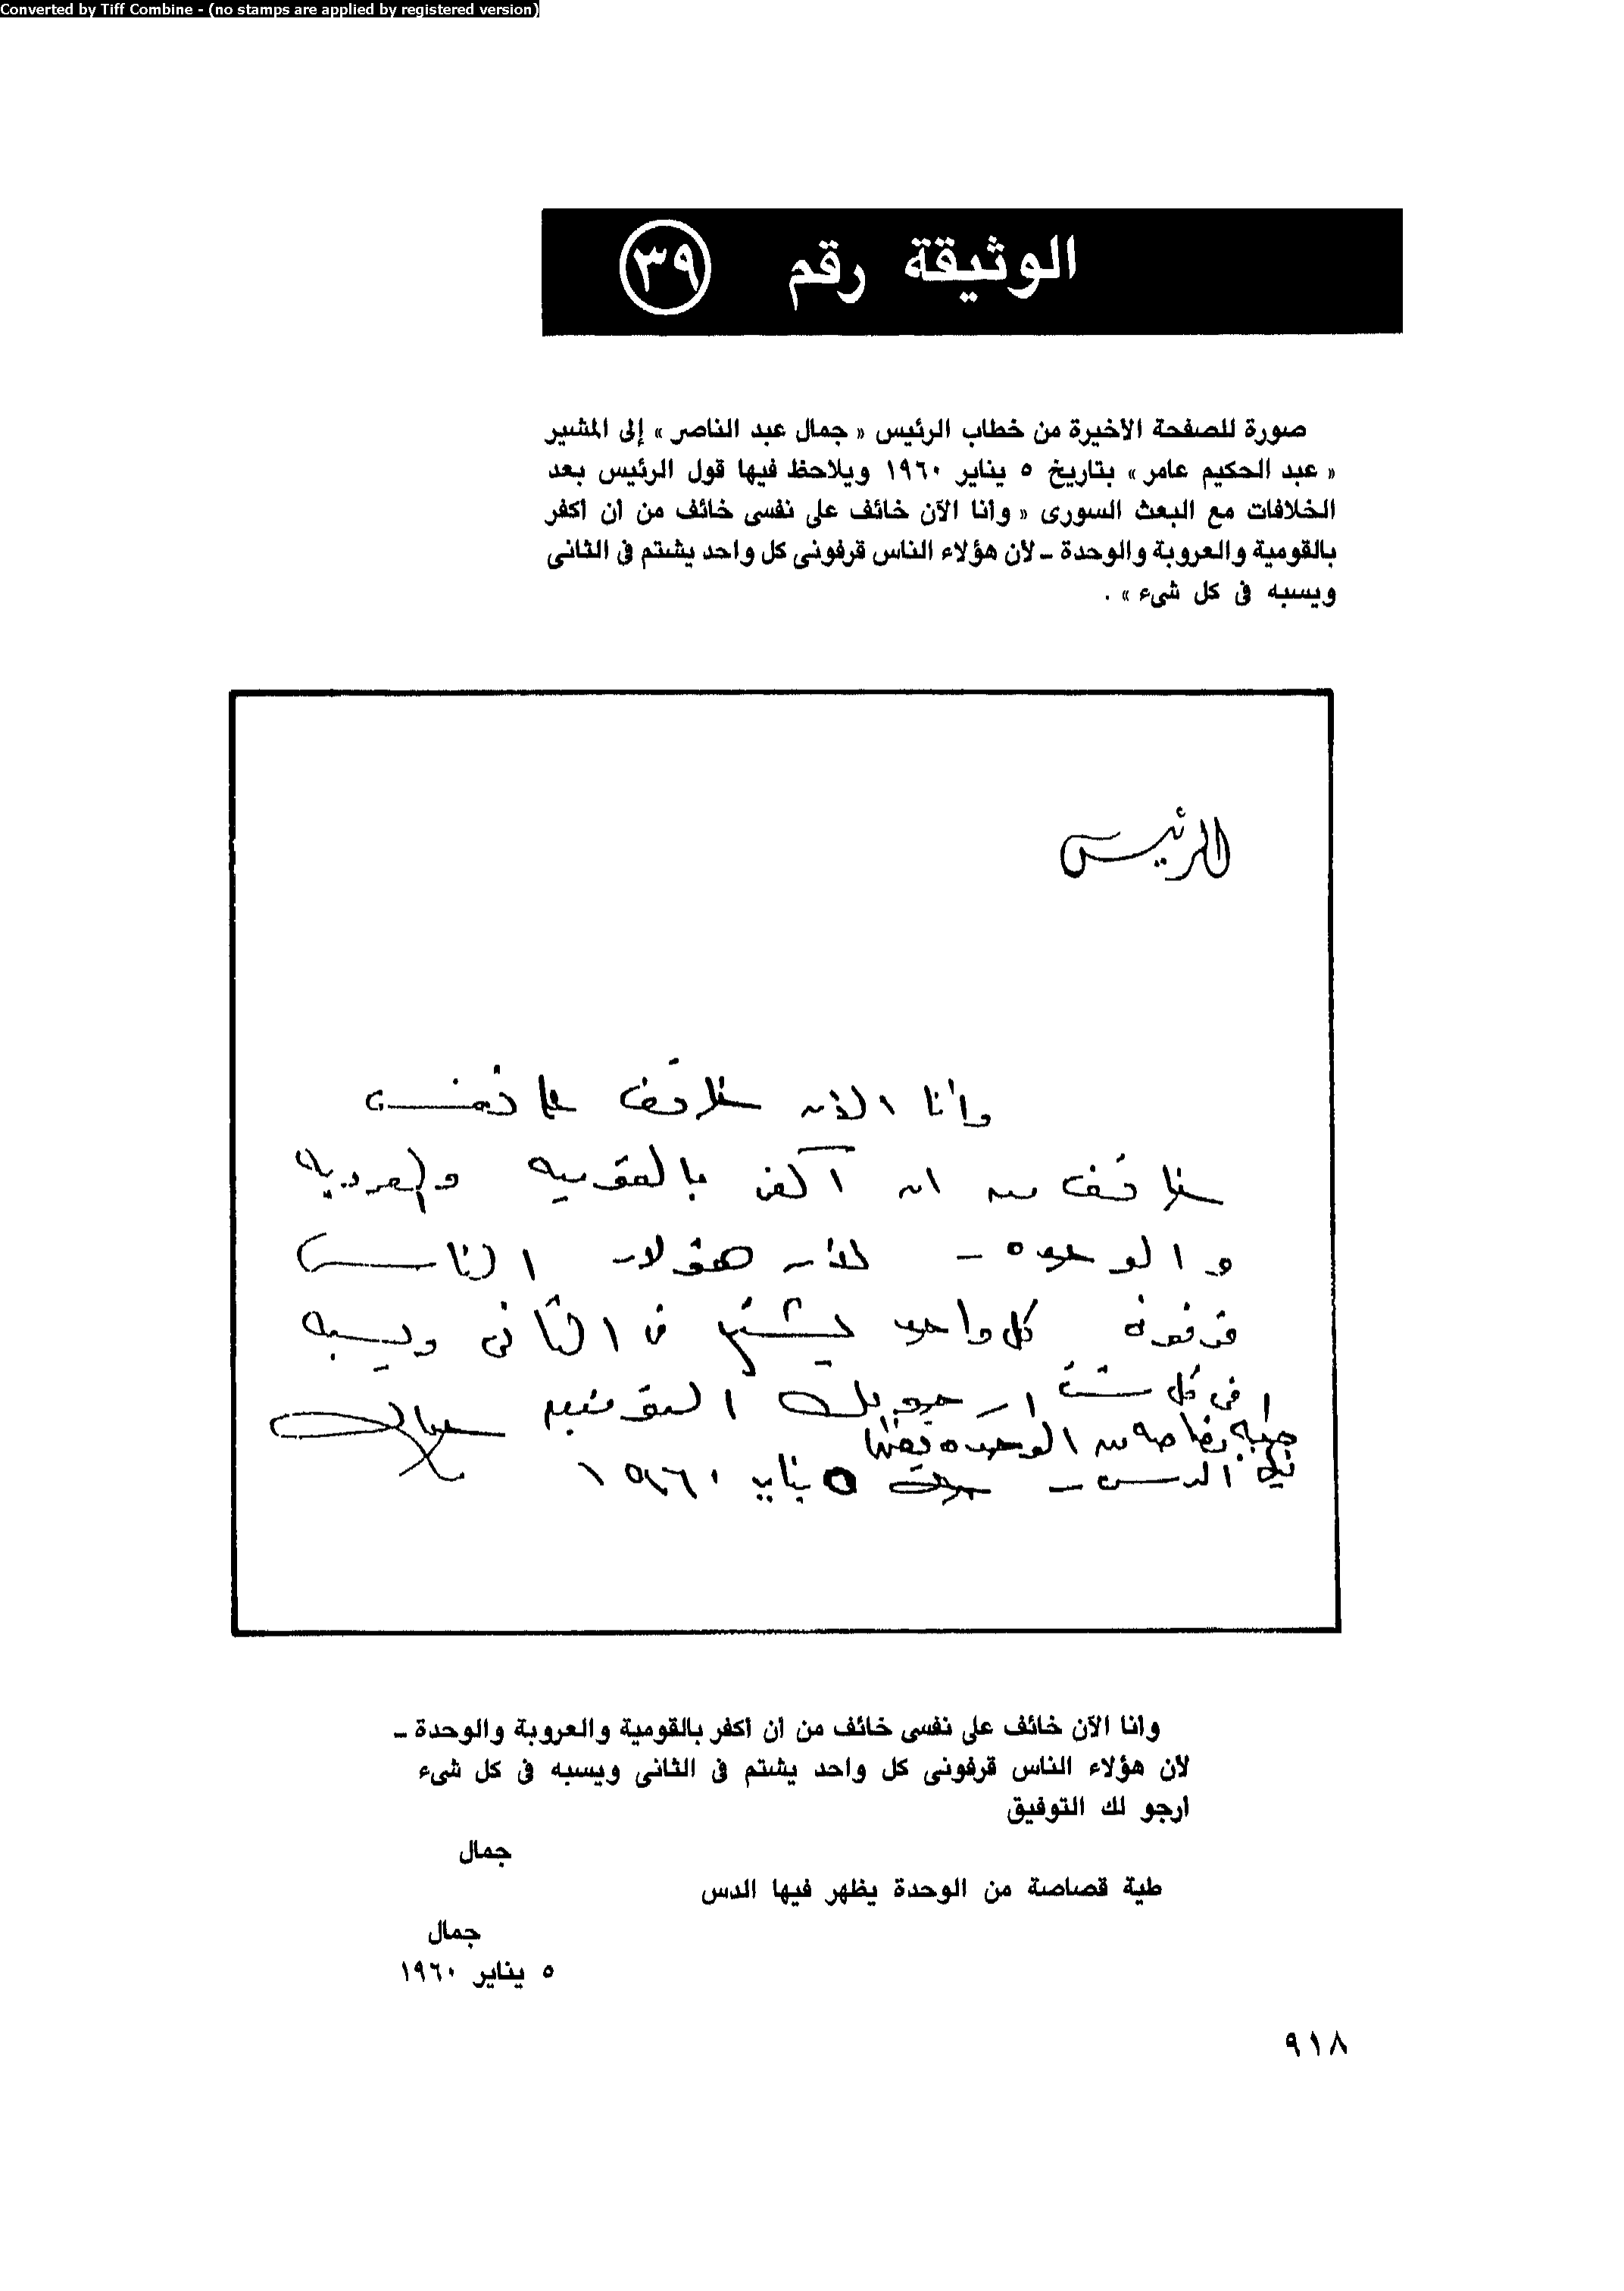 Converted by Tiff Combine - (no stamps are applied by registered version)
الوثيقة رقم ٣٩
صورة للصفحة الأخيرة من خطاب الرئيس « جمال عبد الناصر » إلى المشير
« عبد الحكيم عامر » بتاريخ ٥ يناير ١٩٦٠ ويلاحظ فيها قول الرئيس بعد
الخلافات مع البعث السورى « وأنا الآن خائف على نفسى خائف من أن أكفر
بالقومية والعروبة والوحدة - لأن هؤلاء الناس قرفونى كل واحد يشتم فى الثانى
ويسبه فى كل شىء » .
الرئيس
وأنا الآن خائف على نفسى
خائف من ان أكفر بالقوميه والعروبه
والوحده - لأن هؤلاء الناس
قرفونى كل واحد يشتم فى الثانى ويسبه
فى كل شئ ارجو لك التوفيق جمال
طيه قصاصه من الوحده يظهر
فيها الدس - جمال ٥ يناير ١٩٦٠
وأنا الآن خائف على نفسى خائف من أن أكفر بالقومية والعروبة والوحدة -
لأن هؤلاء الناس قرفونى كل واحد يشتم فى الثانى ويسبه فى كل شىء
أرجو لك التوفيق
جمال
طية قصاصة من الوحدة يظهر فيها الدس
جمال
٥ يناير ١٩٦٠
٩١٨